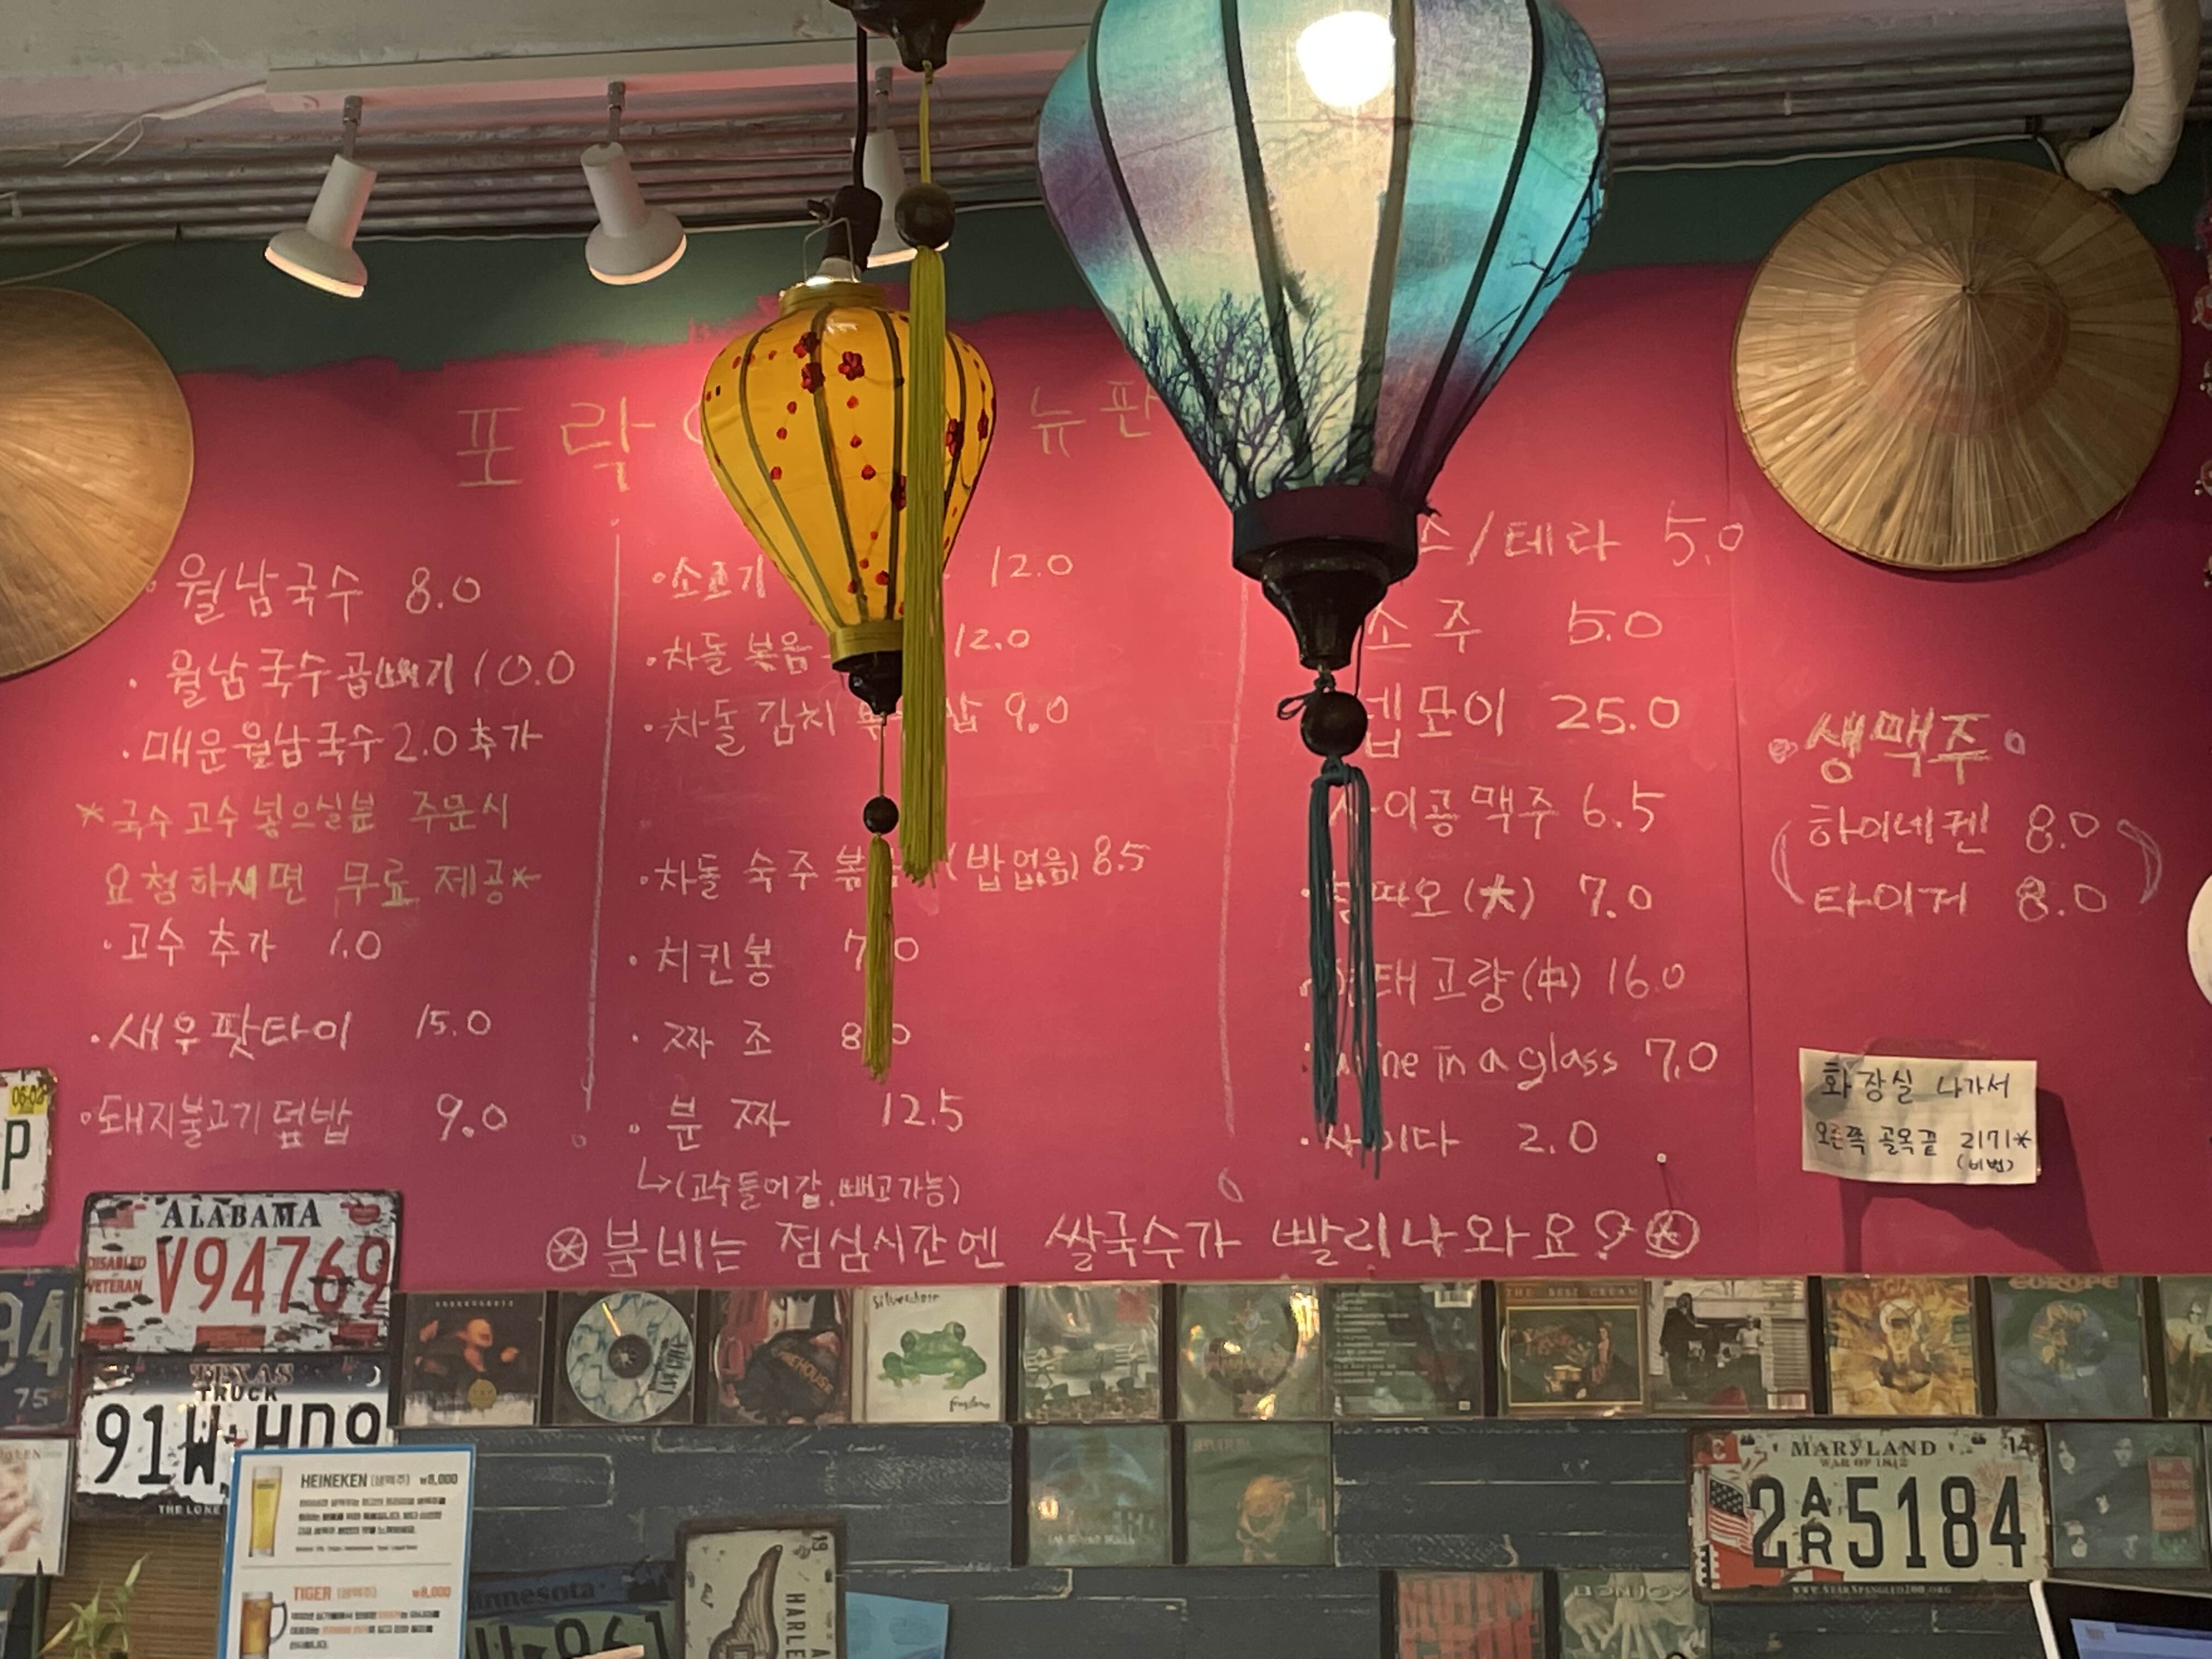 포 락
뉴 판
월남국수 8.0
월남국수곱빼기 10.0
매운월남국수 2.0 추가
*국수 고수 넣으실분 주문시
요청하시면 무료 제공*
고수 추가 1.0
새우팟타이 15.0
돼지불고기덮밥 9.0
소고기 12.0
차돌 볶음 12.0
차돌 김치 밥 9.0
차돌 숙주 (밥없음) 8.5
치킨봉 7.0
짜조 8.0
분짜 12.5
(고수들어감, 빼고가능)
/테라 5.0
소주 5.0
넵모이 25.0
사이공맥주 6.5
(大) 7.0
고량(中) 16.0
wine in a glass 7.0
사이다 2.0
생맥주
하이네켄 8.0
타이거 8.0
화장실 나가서
오른쪽 골목끝 2171*
(비번)
붐비는 점심시간엔 쌀국수가 빨리나와요?
ALABAMA
DISABLED VETERAN V94769
TEXAS
TRUCK
91W HD9
THE LONE
HEINEKEN (생맥주) ₩8,000
TIGER (생맥주) ₩8,000
silverchair
frogstomp
FIREHOUSE
THE BEST CREAM
EUROPE
MARYLAND
WAR OF 1812
2AR5184
WWW.STARSPANGLED200.ORG
Minnesota
HARLE
MOTLEY
BON JOVI